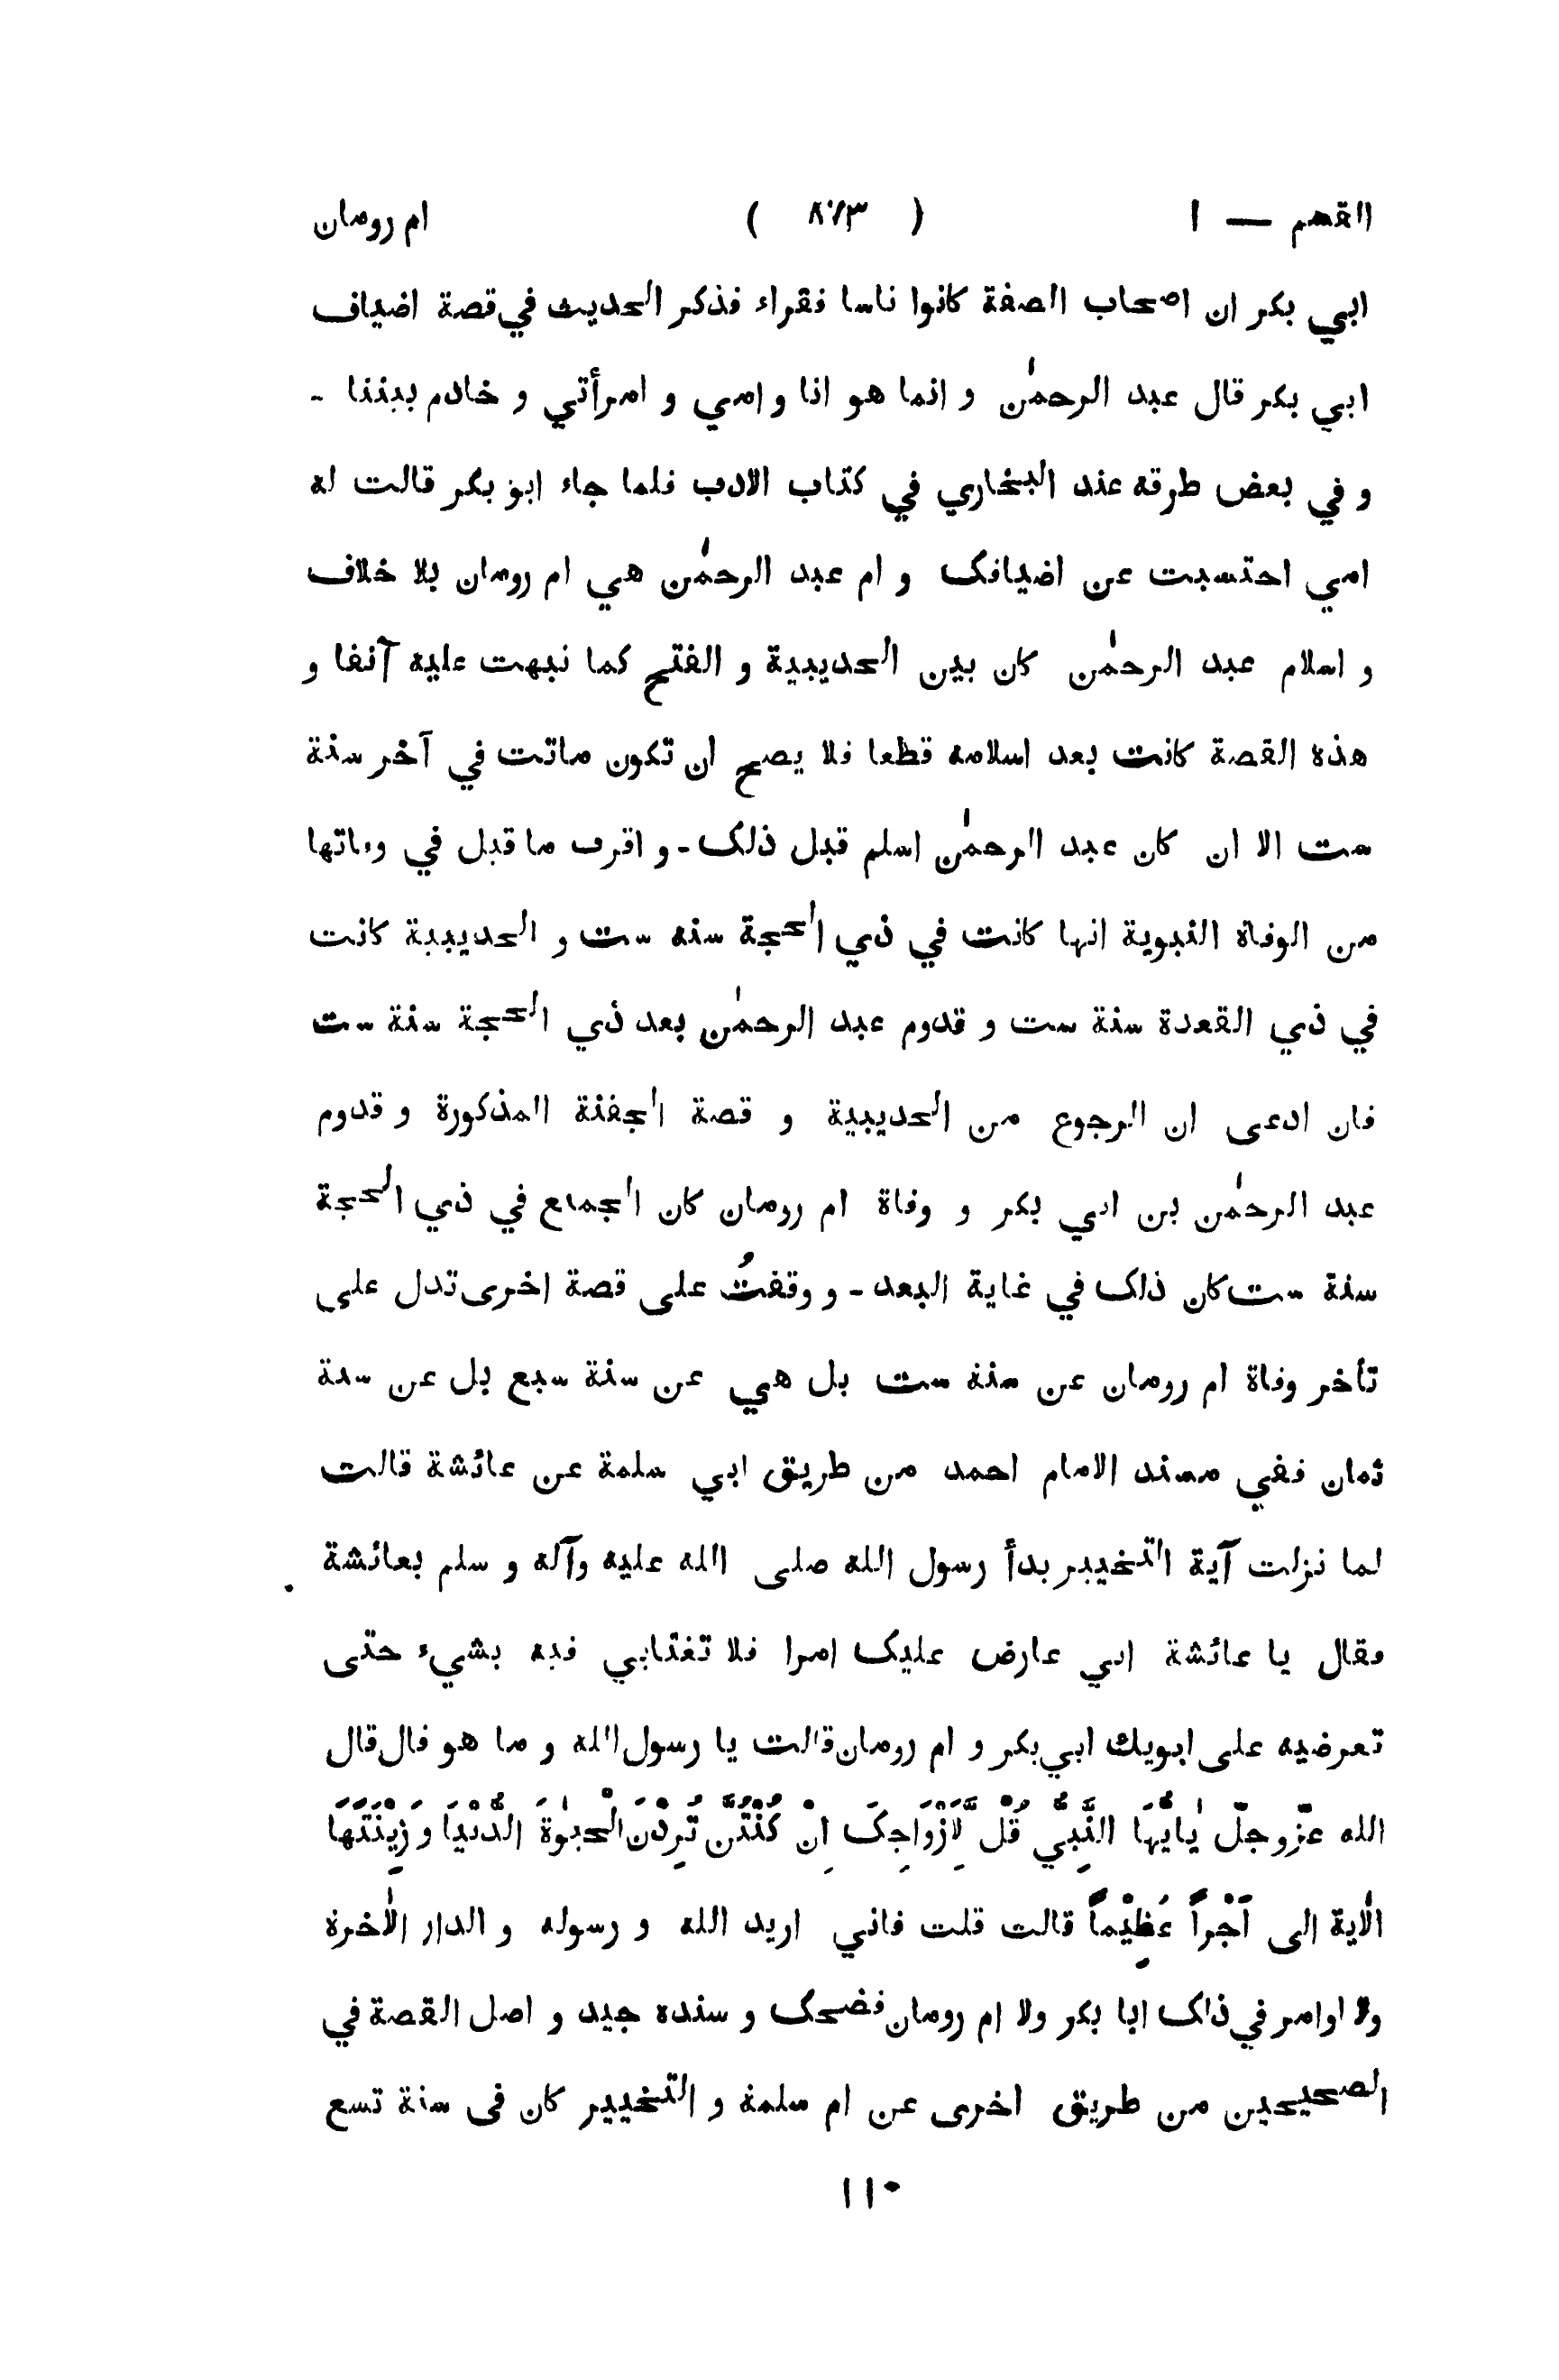 القسم — ١ ( ٨٧٣ ) ام رومان
ابي بكر ان اصحاب الصفة كانوا ناسا فقراء فذكر الحديث في قصة اضياف
ابي بكر قال عبد الرحمٰن و انما هو انا و امي و امرأتي و خادم بيننا -
و في بعض طرقه عند البخاري في كتاب الادب فلما جاء ابو بكر قالت له
امي احتسبت عن اضيافك و ام عبد الرحمٰن هي ام رومان بلا خلاف
و اسلام عبد الرحمٰن كان بين الحديبية و الفتح كما نبهت عليه آنفا و
هذه القصة كانت بعد اسلامه قطعا فلا يصح ان تكون ماتت في آخر سنة
ست الا ان كان عبد الرحمٰن اسلم قبل ذلك - و اقرب ما قيل في وفاتها
من الوفاة النبوية انها كانت في ذي الحجة سنة ست و الحديبية كانت
في ذي القعدة سنة ست و قدوم عبد الرحمٰن بعد ذي الحجة سنة ست
فان ادعى ان الرجوع من الحديبية و قصة الجفنة المذكورة و قدوم
عبد الرحمٰن بن ابي بكر و وفاة ام رومان كان الجماع في ذي الحجة
سنة ست كان ذلك في غاية البعد - و وقفتُ على قصة اخرى تدل على
تأخر وفاة ام رومان عن سنة ست بل هي عن سنة سبع بل عن سنة
ثمان ففي مسند الامام احمد من طريق ابي سلمة عن عائشة قالت
لما نزلت آية التخيير بدأ رسول الله صلى الله عليه وآله و سلم بعائشة
فقال يا عائشة اني عارض عليك امرا فلا تفتابي فيه بشيء حتى
تعرضيه على ابويك ابي بكر و ام رومان قالت يا رسول الله و ما هو قال قال
الله عزّ و جلّ يٰايُّهَا النَّبِيُّ قُلْ لِّاَزْوَاجِكَ اِنْ كُنْتُنَّ تُرِدْنَ الْحَيٰوةَ الدُّنْيَا وَ زِيْنَتَهَا
الاٰية الى اَجْراً عَظِيْماً قالت قلت فاني اريد الله و رسوله و الدار الاٰخرة
ولا اوامر في ذلك ابا بكر ولا ام رومان فضحك و سنده جيد و اصل القصة في
الصحيحين من طريق اخرى عن ام سلمة و التخيير كان فى سنة تسع
١١٠